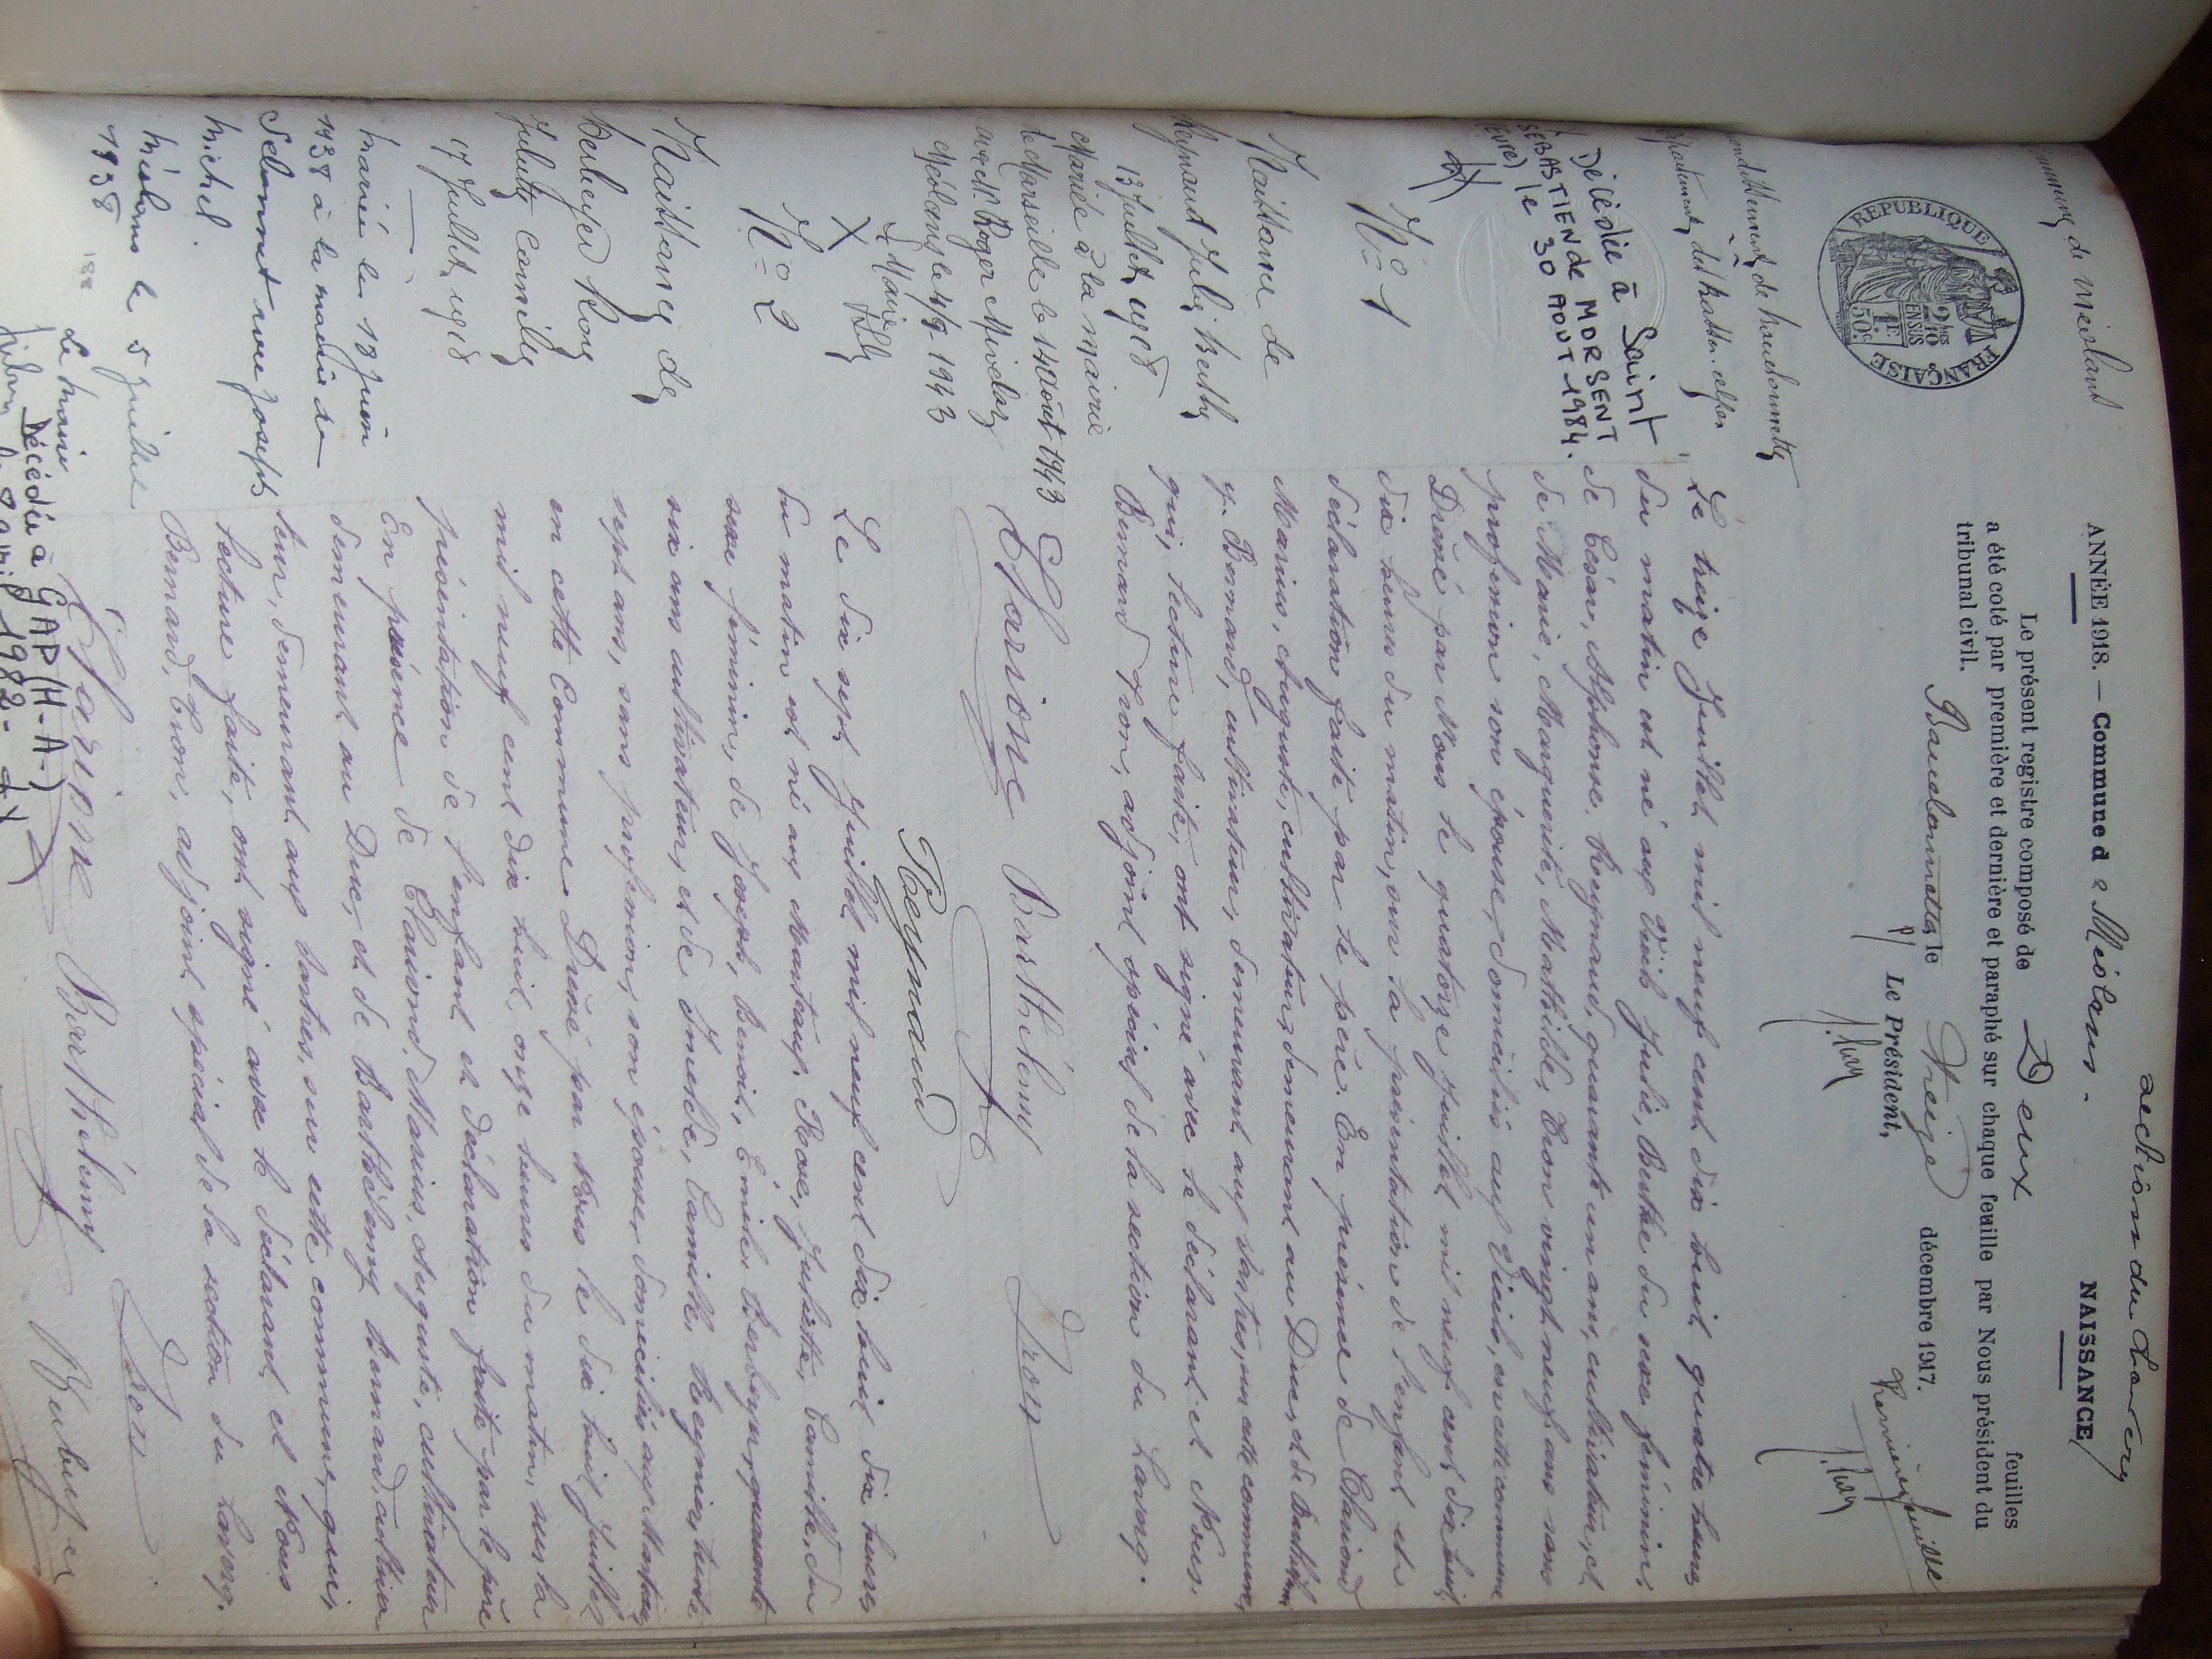 section du Laverq
Commune de Méolans
ANNÉE 1918. — Commune de Méolans - NAISSANCE
Le présent registre composé de Deux feuilles
a été coté par première et dernière et paraphé sur chaque feuille par Nous président du
tribunal civil.
Barcelonnette, le Treize décembre 1917.
Le Président,
Première feuille
REPUBLIQUE FRANÇAISE
2/10 EN SUS
1F 50c
de Barcelonnette
Décédée à Saint
SEBASTIEN de MORSENT
(EVRE) le 30 AOUT 1984.
N° 1
Naissance de
Reynaud Julie Berthe
13 Juillet 1918
Mariée à la mairie
de Marseille le 14 Août 1943
avec Mr Roger
Méolans le 4/9 1943
Le Maire
Le treize Juillet mil neuf cent dix huit quatre heures
du matin est né aux Vials Julie, Berthe du sexe féminin,
de César, Alphonse, Reynaud, quarante un ans, cultivateur, et
de Marie, Marguerite, Mathilde, Tron vingt neuf ans sans
profession son épouse, domiciliés aux Vials, en cette commune
Dressé par Nous le quatorze juillet mil neuf cent dix huit
dix heures du matin, sur la présentation de l'enfant et
déclaration faite par le père. En présence de Clariond
Marius, Auguste, cultivateur, demeurant au Duc, et de Barthélemy
Bernard, cultivateur, demeurant aux en cette commune,
qui, lecture faite, ont signé avec le déclarant et Nous.
Bernard Tron, adjoint spécial de la section du Laverq.
Clarione Barthélemy Tron
Reynaud
N° 2
Naissance de
Berluyer Rose
Juliette Camille
17 Juillet 1918
Mariée le 18 juin
1938 à la mairie de
avec Joseph
Michel.
Méolans le 5 juillet
1938
Le Maire
Décédée à GAP (H-A-)
1982-
Le dix sept Juillet mil neuf cent dix huit dix heures
du matin est né aux Rose, Juliette, Camille, du
sexe féminin, de Joseph, Benoit, Émile, quarante
six ans cultivateur, et de Camille, Reynier, trente
sept ans, sans profession, son épouse, domiciliés
en cette commune Dressé par Nous le dix huit Juillet
mil neuf cent dix huit onze heures du matin, sur la
présentation de l'enfant et déclaration faite par le père
En présence de Clariond, Marius, Auguste, cultivateur
demeurant au Duc, et de Barthélemy Bernard, cultiva
teur, demeurant aux en cette commune, qui,
lecture faite, ont signé avec le déclarant et Nous
Bernard, Tron, adjoint spécial de la section du Laverq.
Clarione Barthélemy Tron